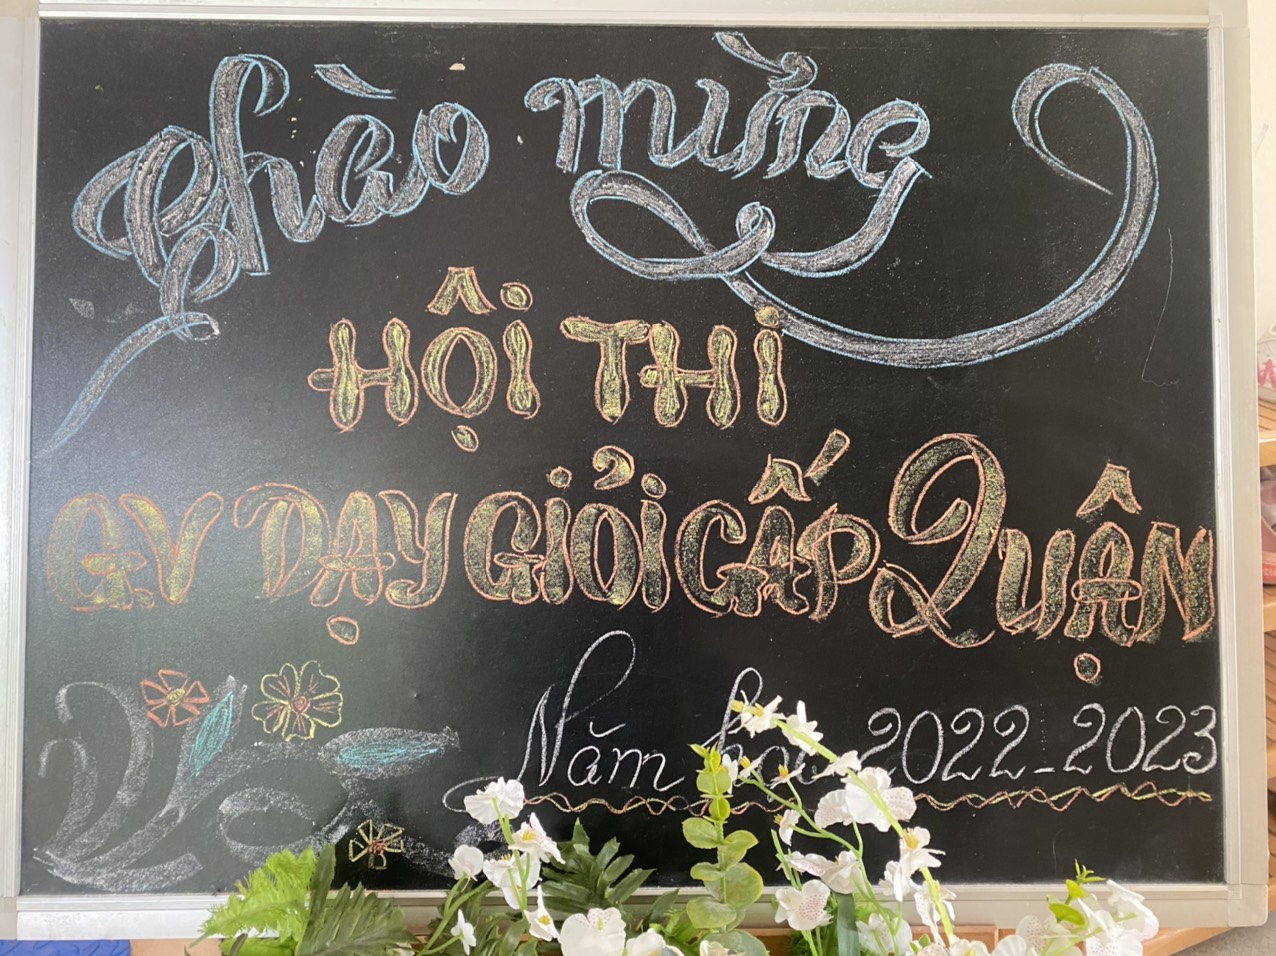 Chào mừng
HỘI THI
G.V DẠY GIỎI CẤP QUẬN
Năm học 2022-2023